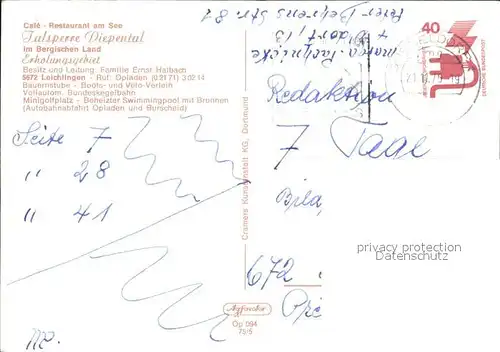 Café - Restaurant am See
Talsperre Diepental
im Bergischen Land
Erholungsgebiet
Besitz und Leitung: Familie Ernst Halbach
5672 Leichlingen - Ruf: Opladen (0 21 71) 3 02 14
Bauernstube - Boots- und Volo-Verleih
Vollautom. Bundeskegelbahn
Minigolfplatz - Beheizter Swimmingpool mit Brunnen
(Autobahnabfahrt Opladen und Burscheid)
Seite 7
" 28
" 41
Cramers Kunstanstalt KG, Dortmund
Agfacolor
Op 094
75/5
Peter Behrens Str. 87
40
DEUTSCHE BUNDESPOST
Redaktion
7 Tage
672
privacy protection
Datenschutz